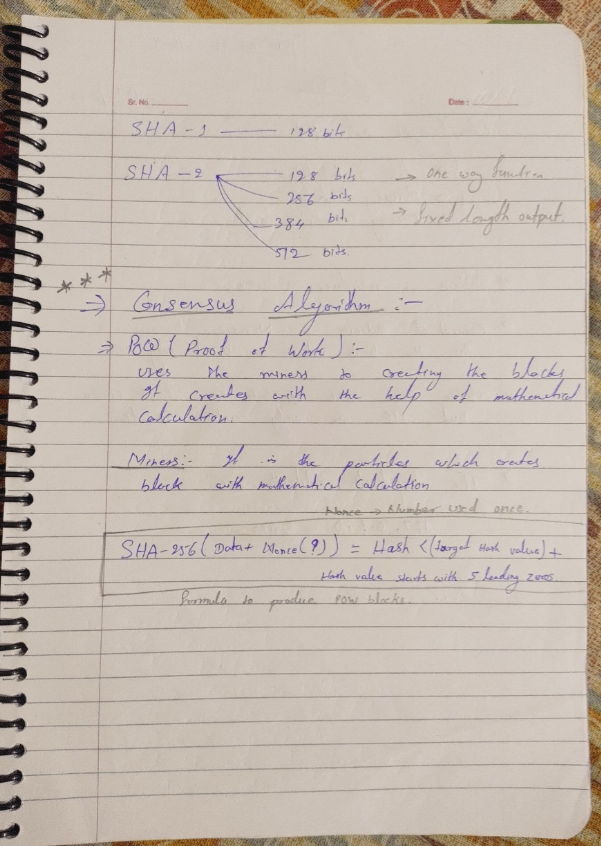 Sr. No.
Date:
SHA-1 — 128 bits
SHA-2 — 128 bits → one way function
256 bits
384 bits → fixed length output.
512 bits.
***
⇒ Consensus Algorithm :-
⇒ POW (Proof of Work) :-
uses the miners to creating the blocks
It creates with the help of mathematical
calculation.
Miners:- It is the particles which creates
block with mathematical calculation
Nonce → Number used once.
SHA-256 (Data + Nonce(?)) = Hash < (Target Hash value) +
Hash value starts with 5 leading zeros.
formula to produce POW blocks.